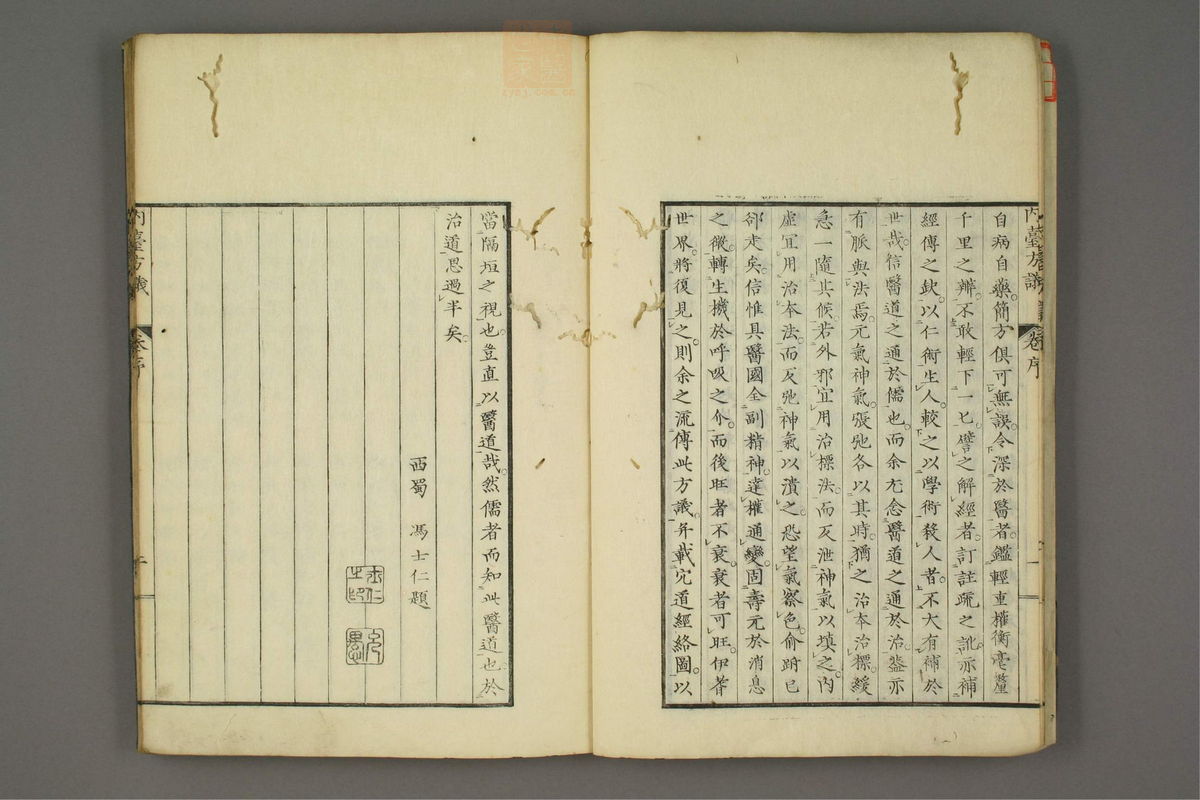 內臺方議 卷序
自病自藥簡方俱可無誤令深於醫者鑑輕重權衡毫釐
千里之辨不敢輕下一匕譬之解經者訂註疏之訛亦補
經傳之缺以仁術生人較之以學術殺人者不大有補於
世哉信醫道之通於儒也而余尤念醫道之通於治盖亦
有脈與法焉元氣神氣張弛各以其時猶之治本治標緩
急一隨其候若外邪宜用治標法而反泄神氣以填之內
虛宜用治本法而反弛神氣以潰之恐望氣察色俞跗已
郤走矣信惟具醫國全副精神達權通變固壽元於消息
之微轉生機於呼吸之介而後旺者不衰衰者可旺伊蓍
世界將復見之則余之流傳此方議并載穴道經絡圖以
當隔垣之視也豈直以醫道哉然儒者而知此醫道也於
治道思過半矣
西蜀 馮士仁題
士仁之印
內臺方議 卷序